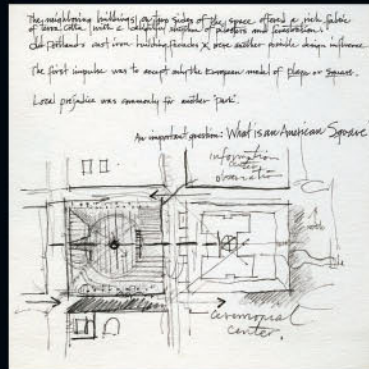 The neighboring buildings on two sides of the space offered a rich fabric
of terra cotta with a delightful rhythm of pilasters and fenestration.
Old Portland's cast iron building facades were another possible design influence.
The first impulse was to accept only the European model of plaza or square.
Local prejudice was commonly for another "park".
An important question: What is an American Square?
information
observation
north
ceremonial
center.